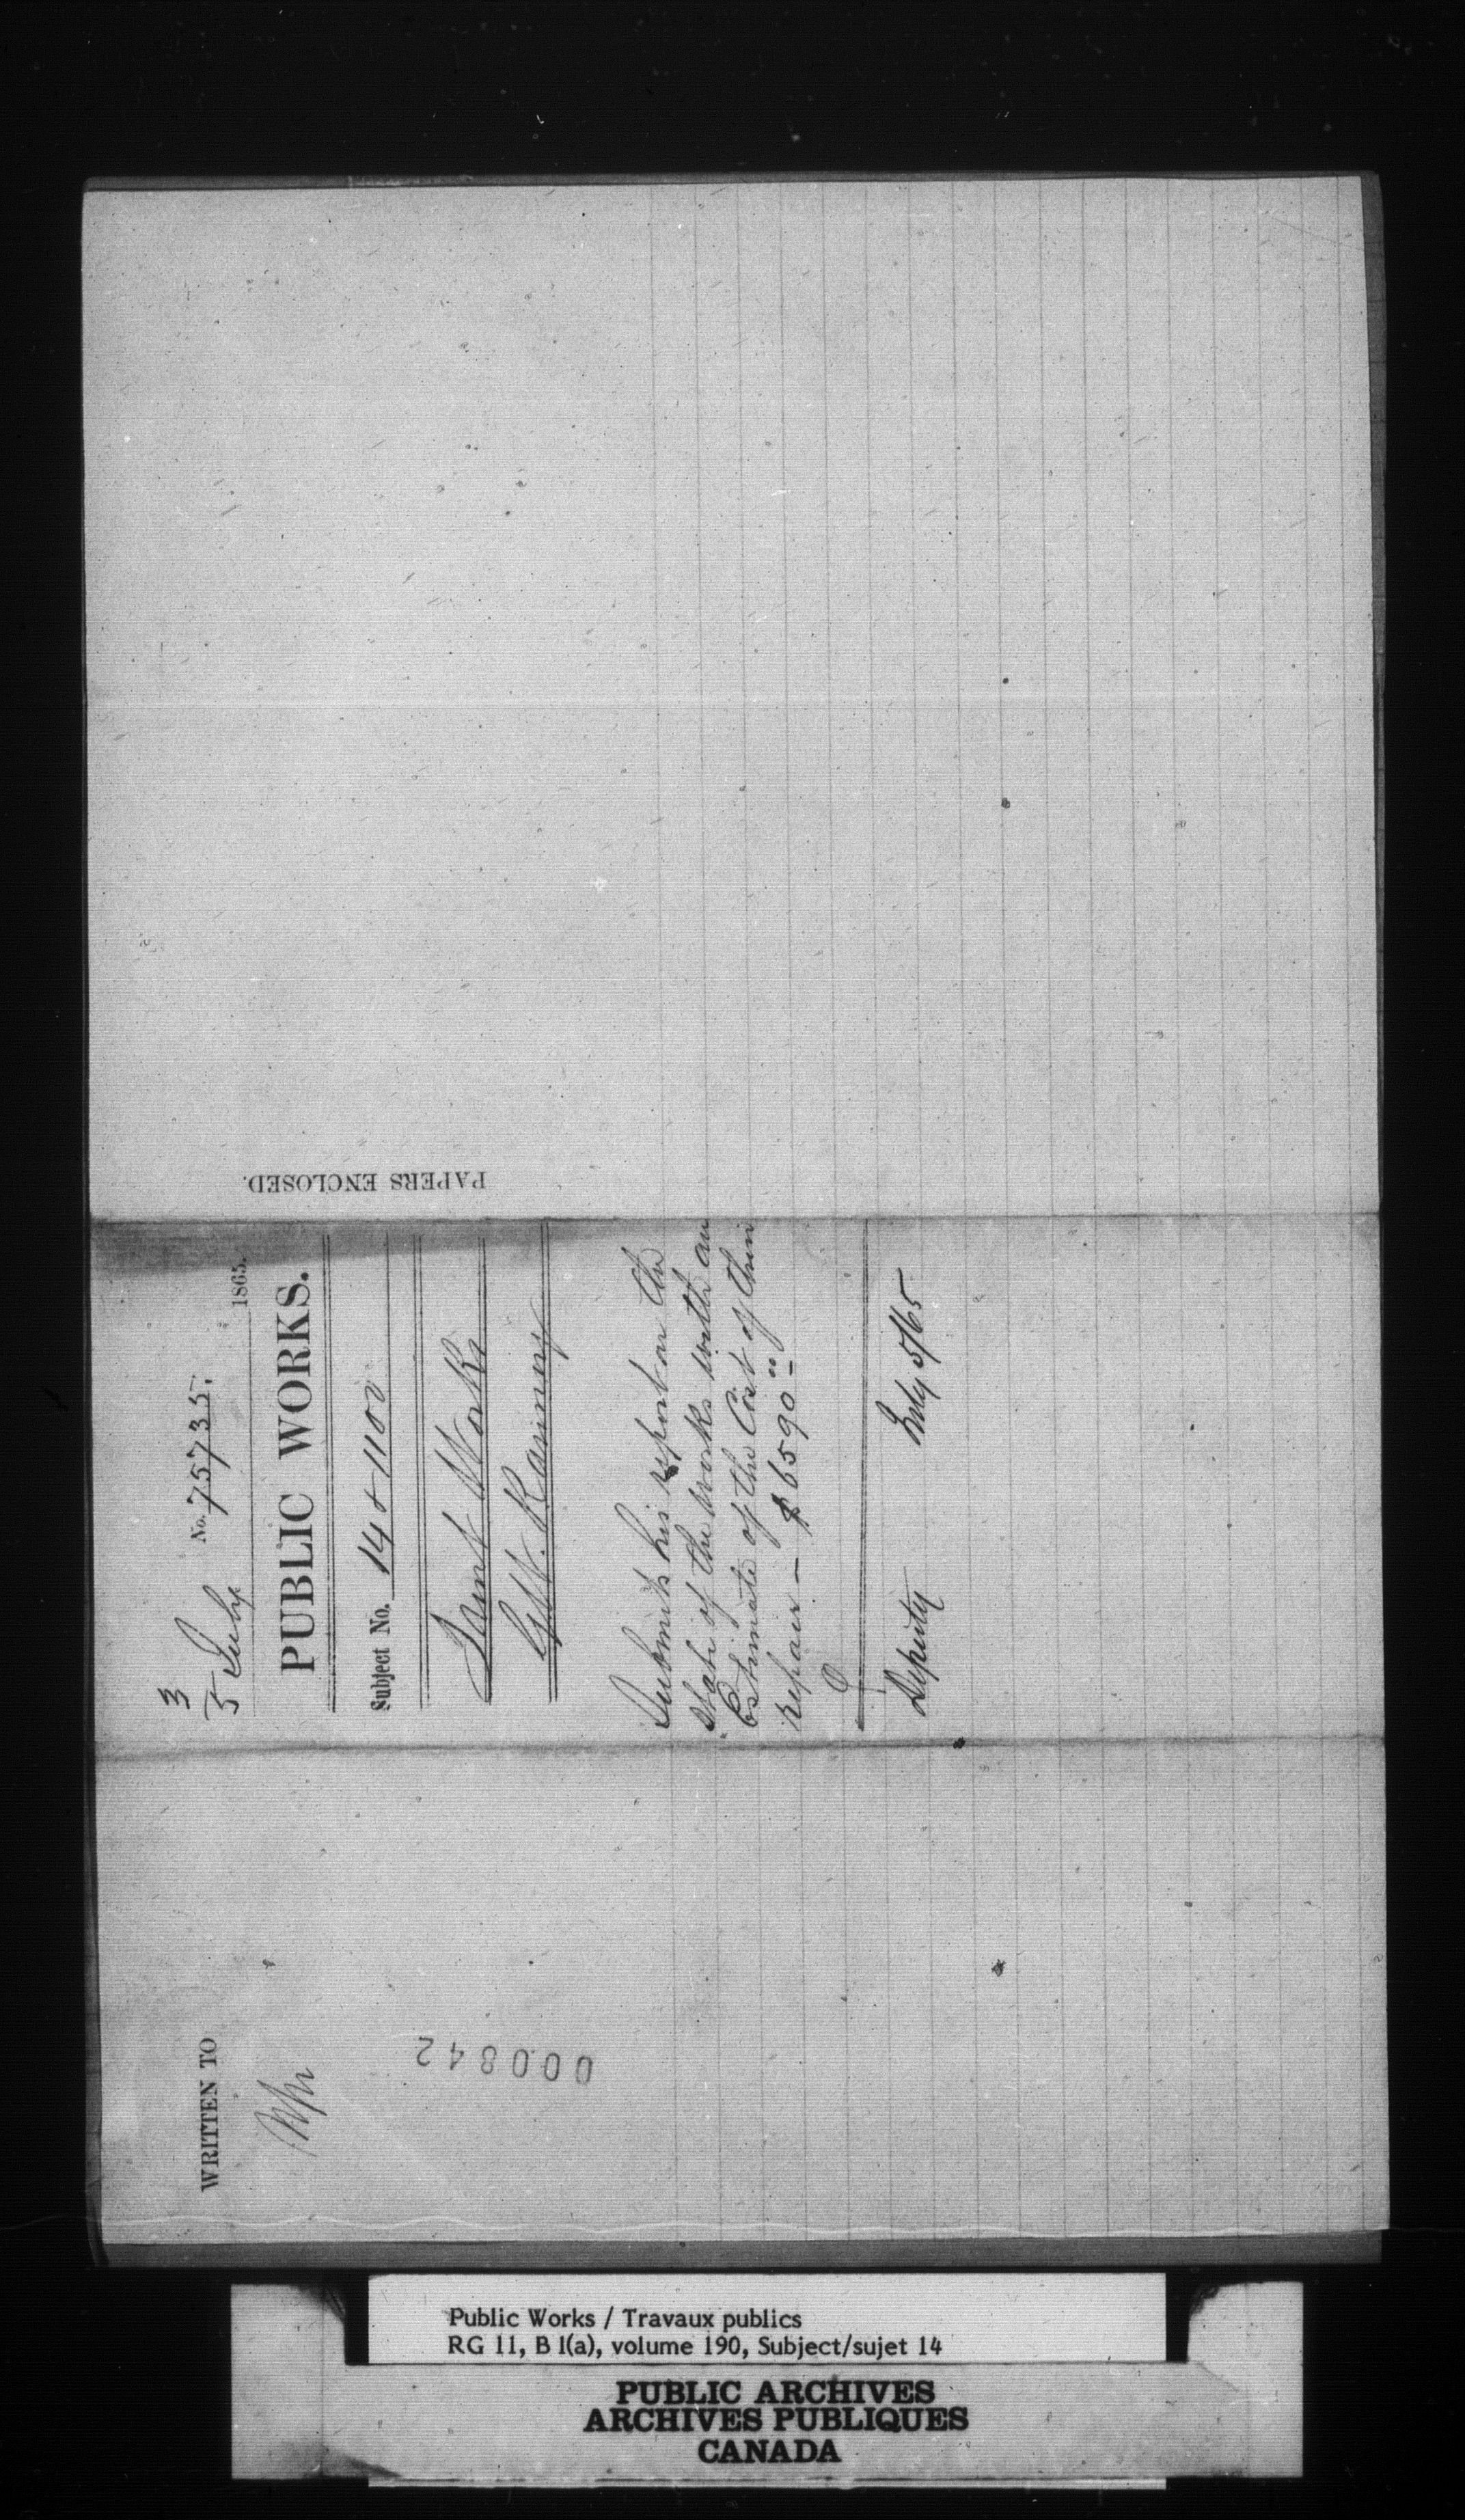 PAPERS ENCLOSED.
3
5 July
No. 75735.
1865.
PUBLIC WORKS.
Subject No. 14 & 1100
Trent Works
G.W. Ranney
Submits his report on the
state of the works with an
Estimate of the Cost of their
repair — $6590
Deputy July 5/65
WRITTEN TO
000842
Public Works / Travaux publics
RG 11, B 1(a), volume 190, Subject/sujet 14
PUBLIC ARCHIVES
ARCHIVES PUBLIQUES
CANADA